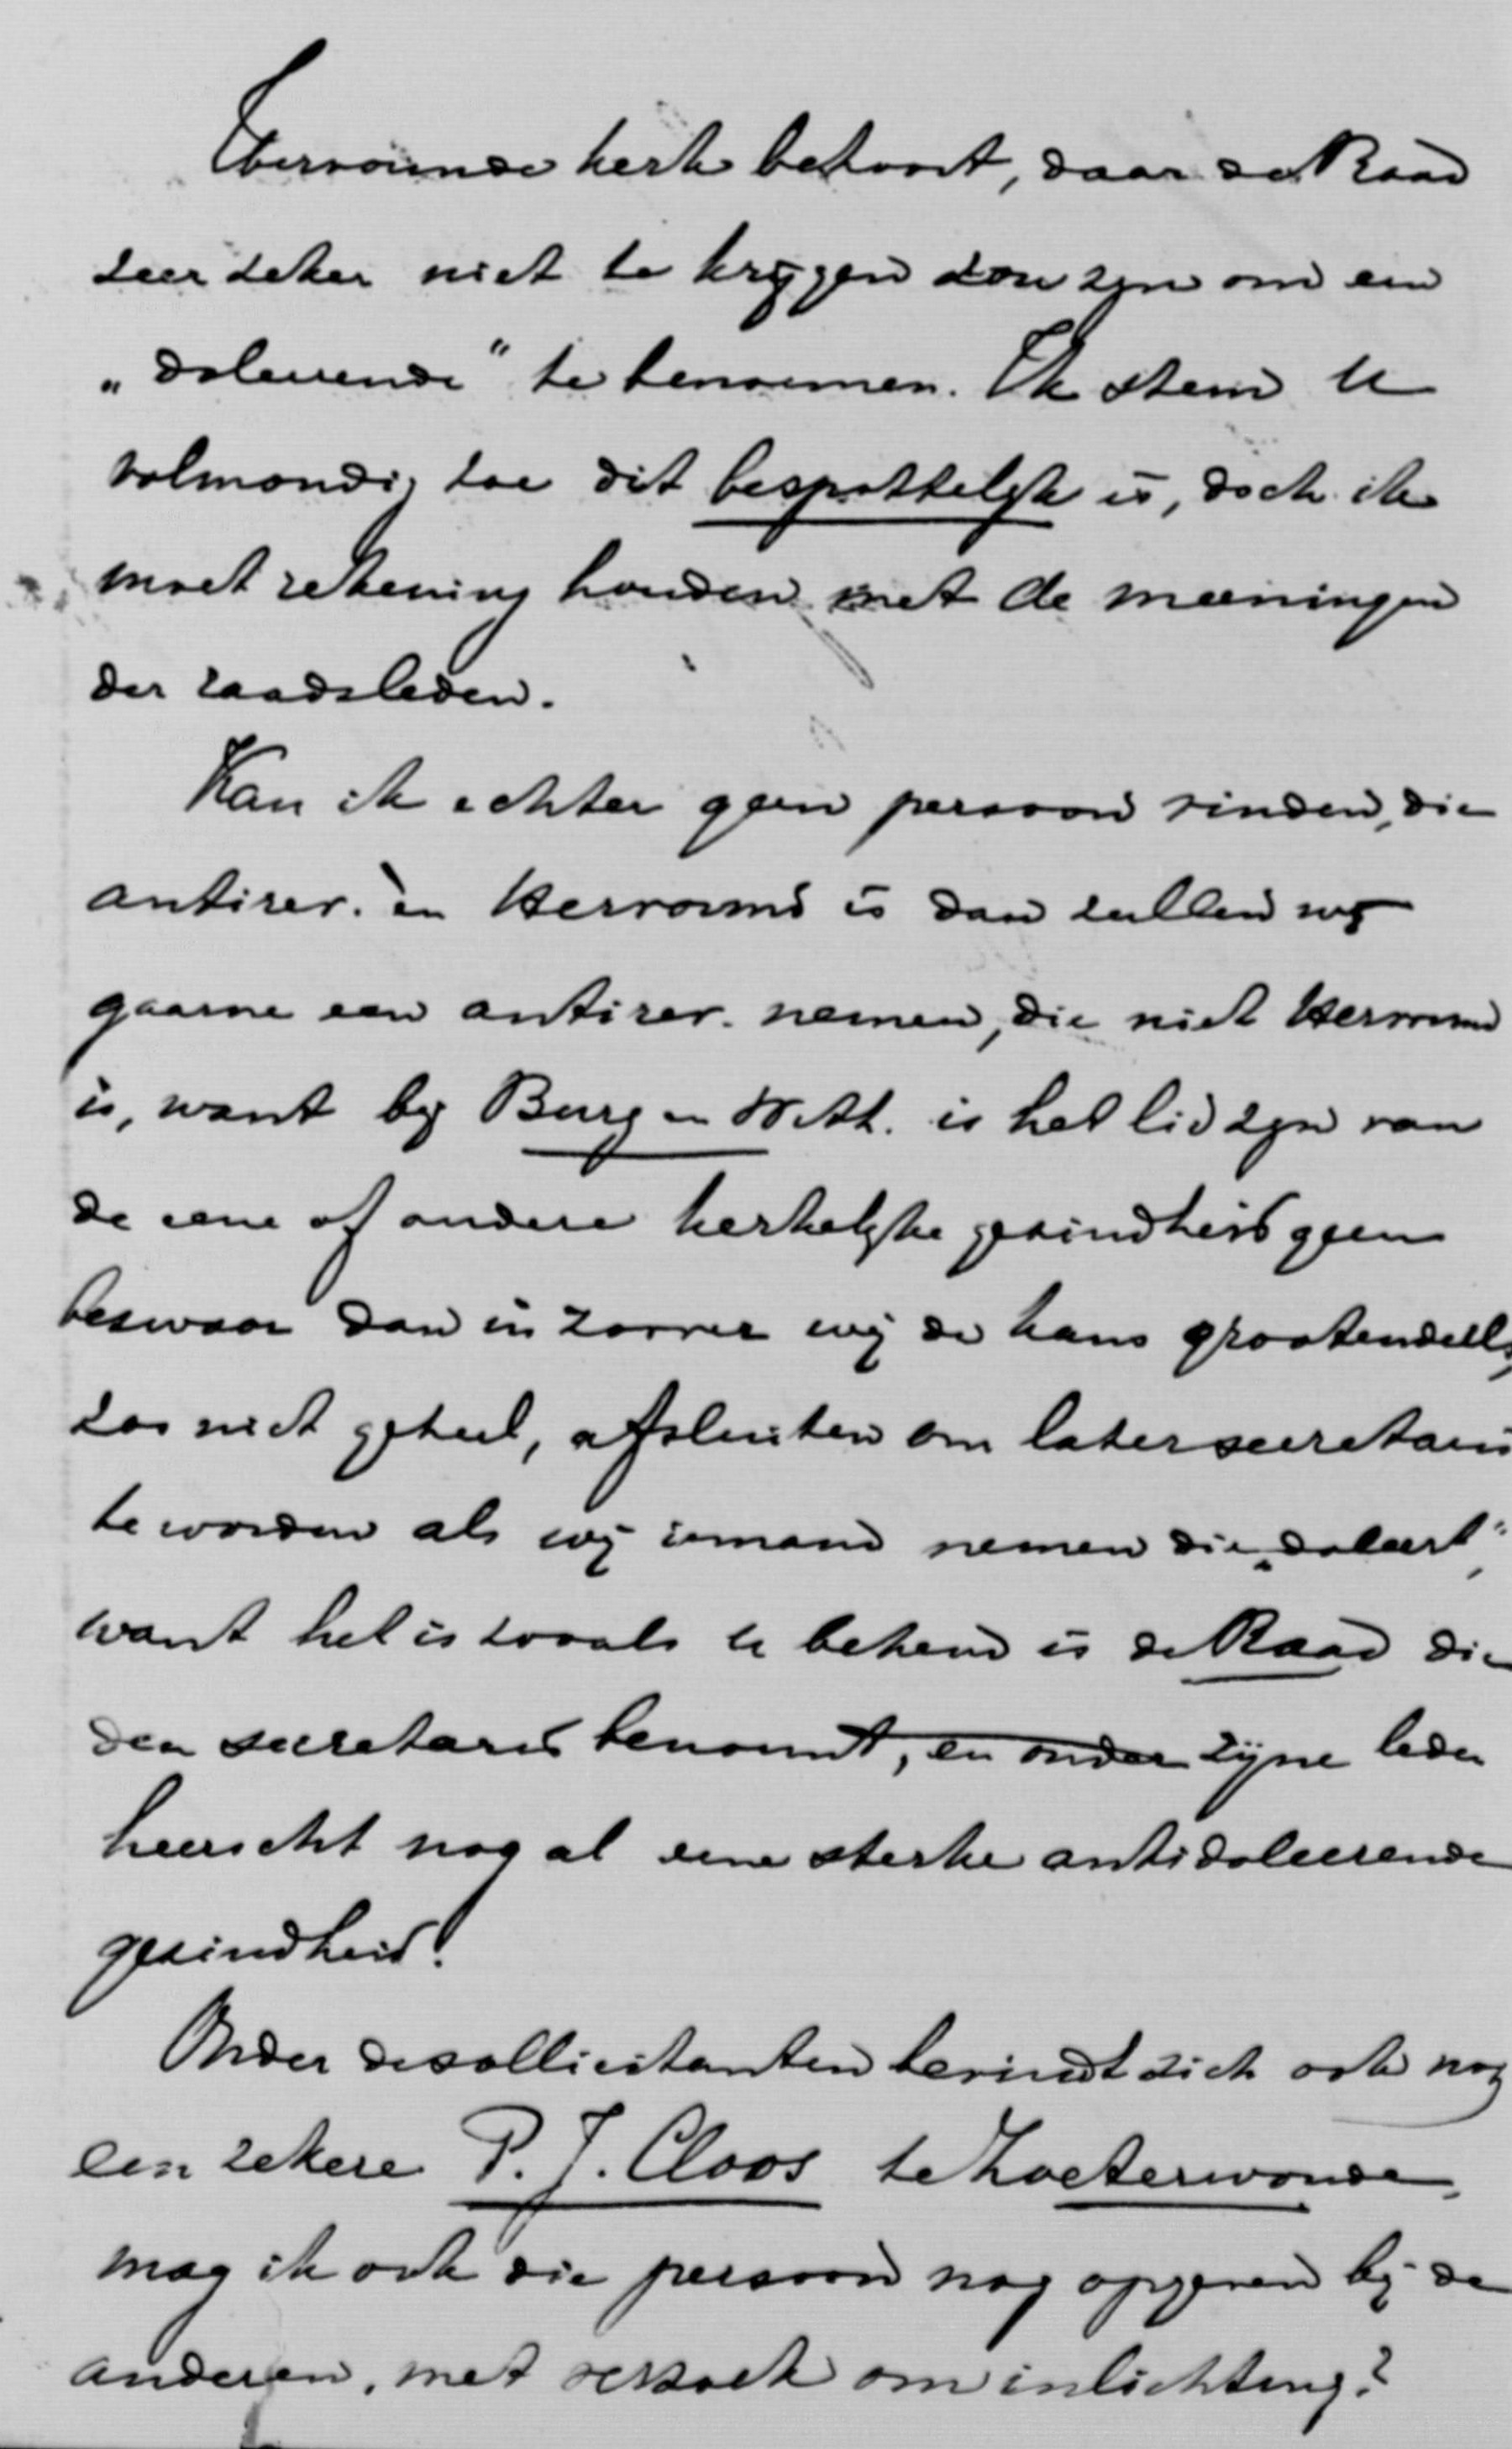 Hervormde kerk behoort, daar de Raad
zeer zeker niet te krijgen zou zijn om een
„doleerende" te benoemen. Ik stem U
volmondig toe dit bespottelijk is, doch ik
moet rekening houden met de meeningen
der raadsleden.
Kan ik echter geen persoon vinden, die
antirev. en Hervormd is dan zullen wij
gaarne een antirev. nemen, die niet Hervormd
is, want bij Burg en Weth. is het lid zijn van
de eene of andere kerkelijke gezindheid geen
bezwaar dan in zoover wij de kans grootendeels,
zoo niet geheel, afsluiten om later secretaris
te worden als wij iemand nemen die „doleert",
want het is zooals U bekend is de Raad die
den secretaris benoemt, en onder zijne leden
heerscht nog al eene sterke antidoleerende
gezindheid!
Onder de sollicitanten bevindt zich ook nog
een zekere P. J. Cloos te Zoeterwoude,
mag ik ook die persoon nog opgeven bij de
anderen, met verzoek om inlichting?